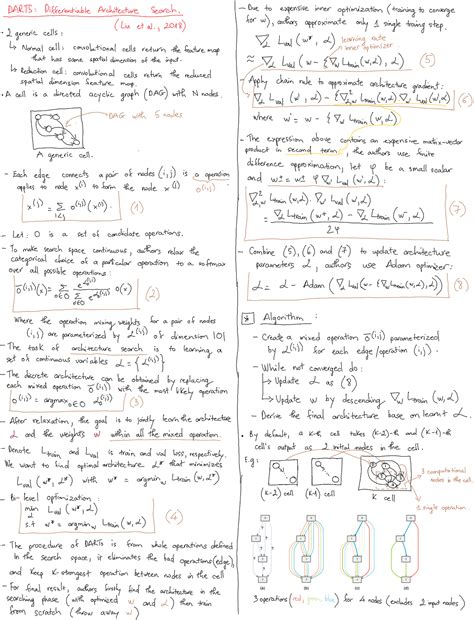 DARTS: Differentiable Architecture Search.
(Liu et al., 2018)
- 2 generic cells:
↳ Normal cell: convolutional cells return the feature map
that has same spatial dimension of the input.
↳ Reduction cell: convolutional cells return the reduced
spatial dimension feature map.
- A cell is a directed acyclic graph (DAG) with N nodes.
DAG with 5 nodes
A generic cell.
- Each edge connects a pair of nodes (i,j) is a operation
applies to node x^(i) to form the node x^(j) o^(i,j)
x^(j) = Σ_{i<j} o^(i,j)(x^(i)) (1)
- Let: O is a set of candidate operations.
- To make search space continuous, authors relax the
categorical choice of a particular operation to a softmax
over all possible operations:
(2)
Where the operation mixing weights for a pair of nodes
(i,j) are parameterized by α^(i,j) of dimension |O|
- The task of architecture search is to learning a
set of continuous variables α = {α^(i,j)}
- The discrete architecture can be obtained by replacing
each mixed operation ō^(i,j) with the most likely operation
o^(i,j) = argmax_{o∈O} α_o^(i,j) (3)
- After relaxation, the goal is to jointly learn the architecture
α and the weights w within all the mixed operation.
- Denote L_train and L_val is train and val loss, respectively.
We want to find optimal architecture α* that minimizes
L_val(w*, α*) with w* = argmin_w L_train(w, α*)
- Bi-level optimization:
min_α L_val(w*, α)
s.t w* = argmin_w L_train(w, α) (4)
- The procedure of DARTS is from whole operations defined
in the search space, it eliminates the bad operations(edge)
and keep K-strongest operation between nodes in the cell
- For final result, authors firstly find the architecture in the
searching phase (with optimized w and α) then train
from scratch (throw away w)
- Due to expensive inner optimization (training to converge
for w), authors approximate only 1 single traing step.
∇_α L_val(w*, α)
learning rate
of inner optimizer
≈ ∇_α L_val(w - ξ∇_w L_train(w,α), α) (5)
- Apply chain rule to approximate architecture gradient:
(6)
where w' = w - ξ∇_w L_train(w, α)
- The expression above contains an expensive matrix-vector
product in second term, the authors use finite
difference approximation, let φ be a small scalar
and w± = w ± φ∇_w' L_val(w', α):
(7)
2φ
- Combine (5), (6) and (7) to update architecture
parameters α, authors use Adam optimizer:
α = α - Adam(∇_α L_val(w', α)) (8)
* Algorithm:
- Create a mixed operation ō^(i,j) parameterized
by α^(i,j) for each edge/operation (i,j).
- While not converged do:
↳ Update α as (8)
↳ Update w by descending ∇_w L_train(w, α)
- Derive the final architecture base on learnt α.
- By default, a K-th cell takes (K-2)-th and (K-1)-th
cell's output as 2 initial nodes in the cell.
E.g:
3 computational
nodes in the cell.
(K-2) cell
(K-1) cell
K cell
1 single operation
(a) (b) (c) (d)
3 operations (red, green, blue) for 4 nodes (excludes 2 input nodes)